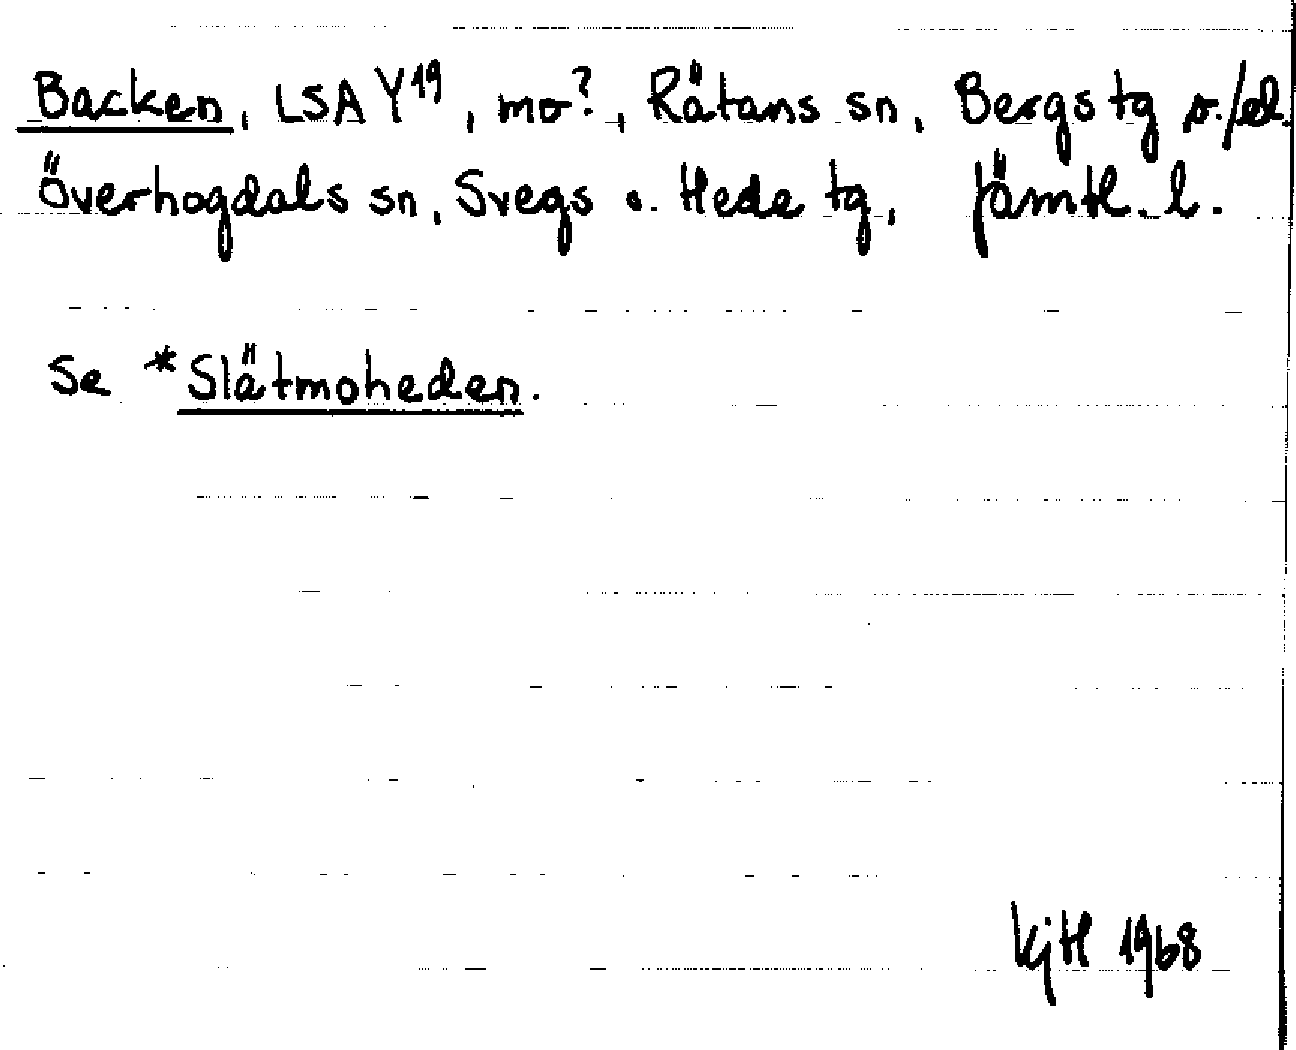 Backen, LSA Y19, mo?, Rätans sn, Bergs tg o./el.
Överhogdals sn, Svegs o. Hede tg, Jämtl. l.
Se *Slätmoheden.
KjH 1968